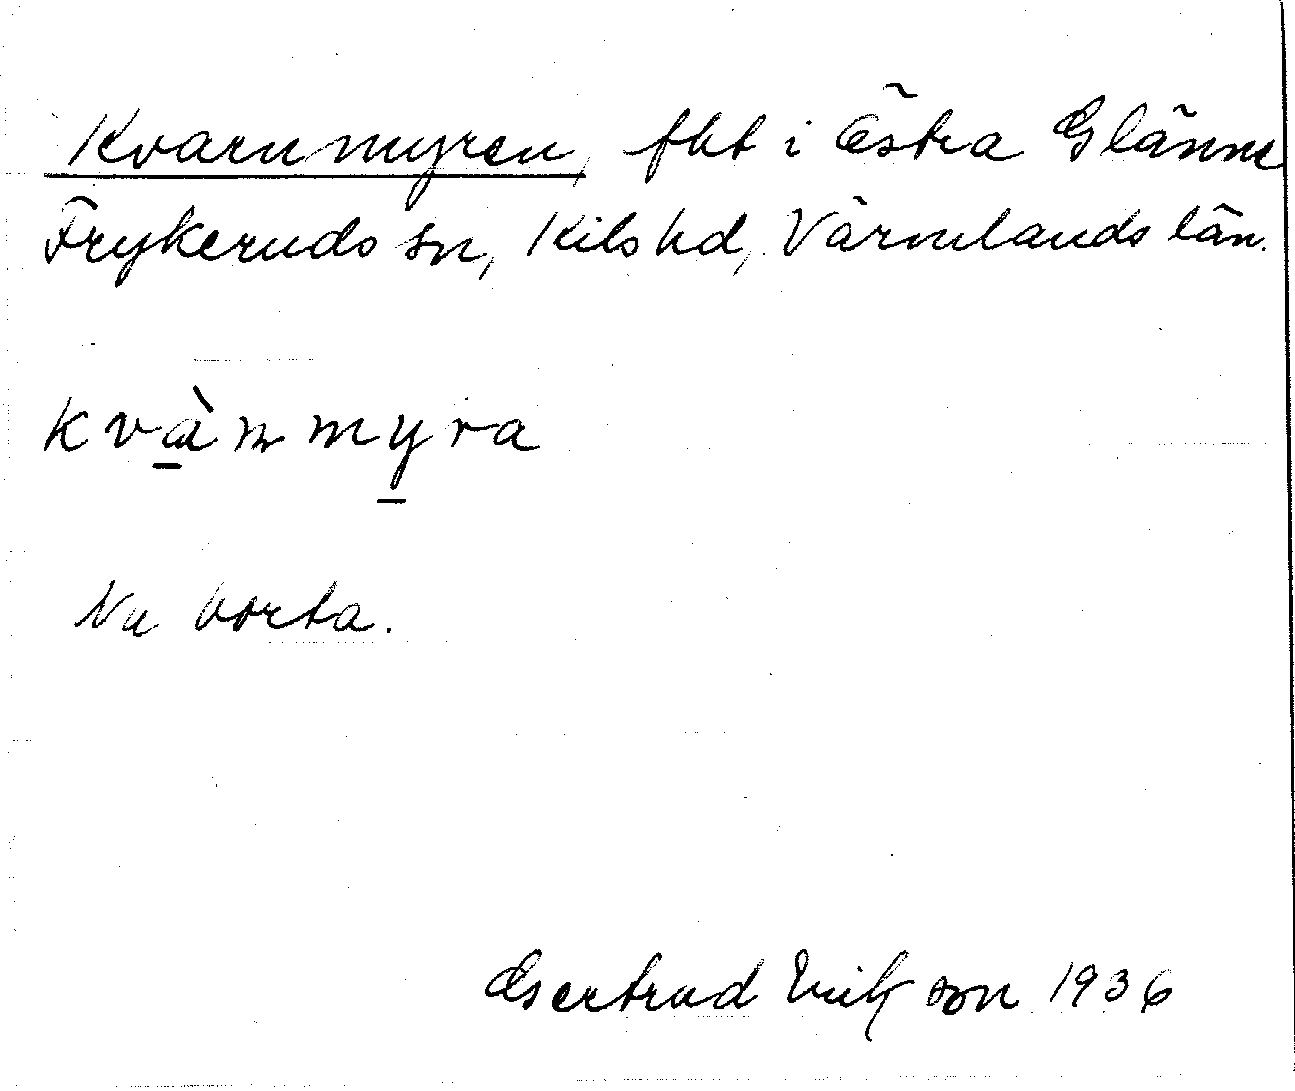 Kvarnmyren, fht i Östra Glänne
Frykeruds sn, Kils hd, Värmlands län.
kvàn myra
Nu borta.
Gertrud Erikson 1936